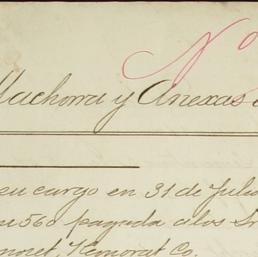 Nº
Machorra y Anexas
su cargo en 31 de Julio
560 pagada a los Sr
Kemorat Co.